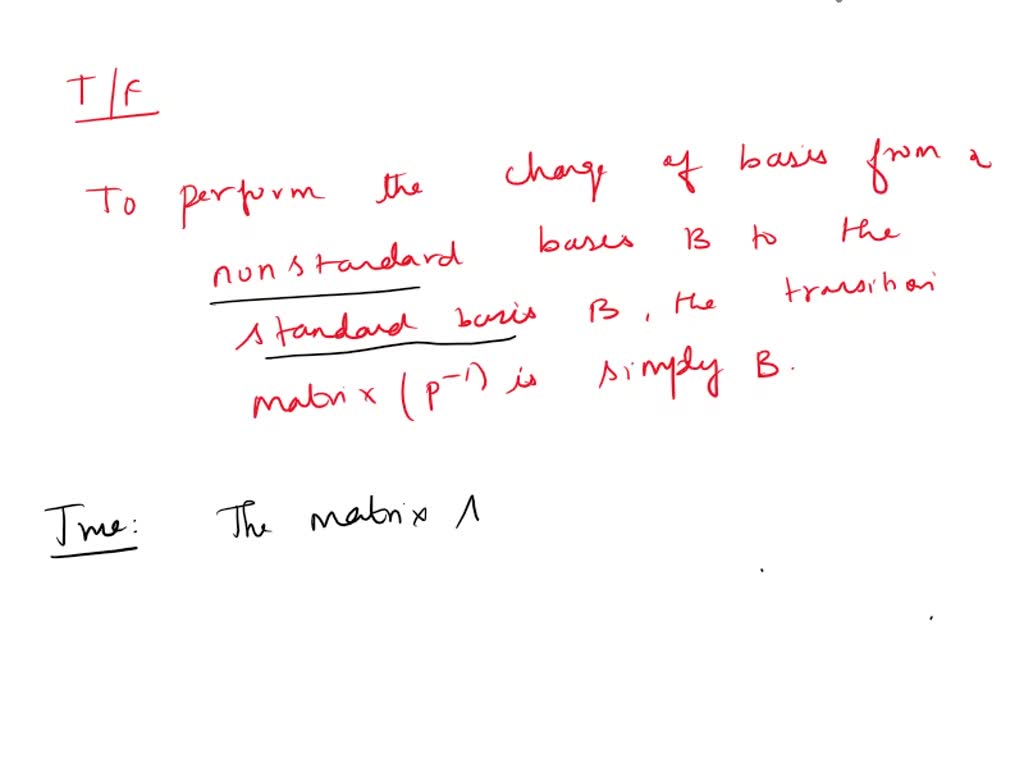 T/F
To perform the change of basis from a
nonstandard bases B to the
standard basis B, the transition
matrix (p⁻¹) is simply B.
True: The matrix